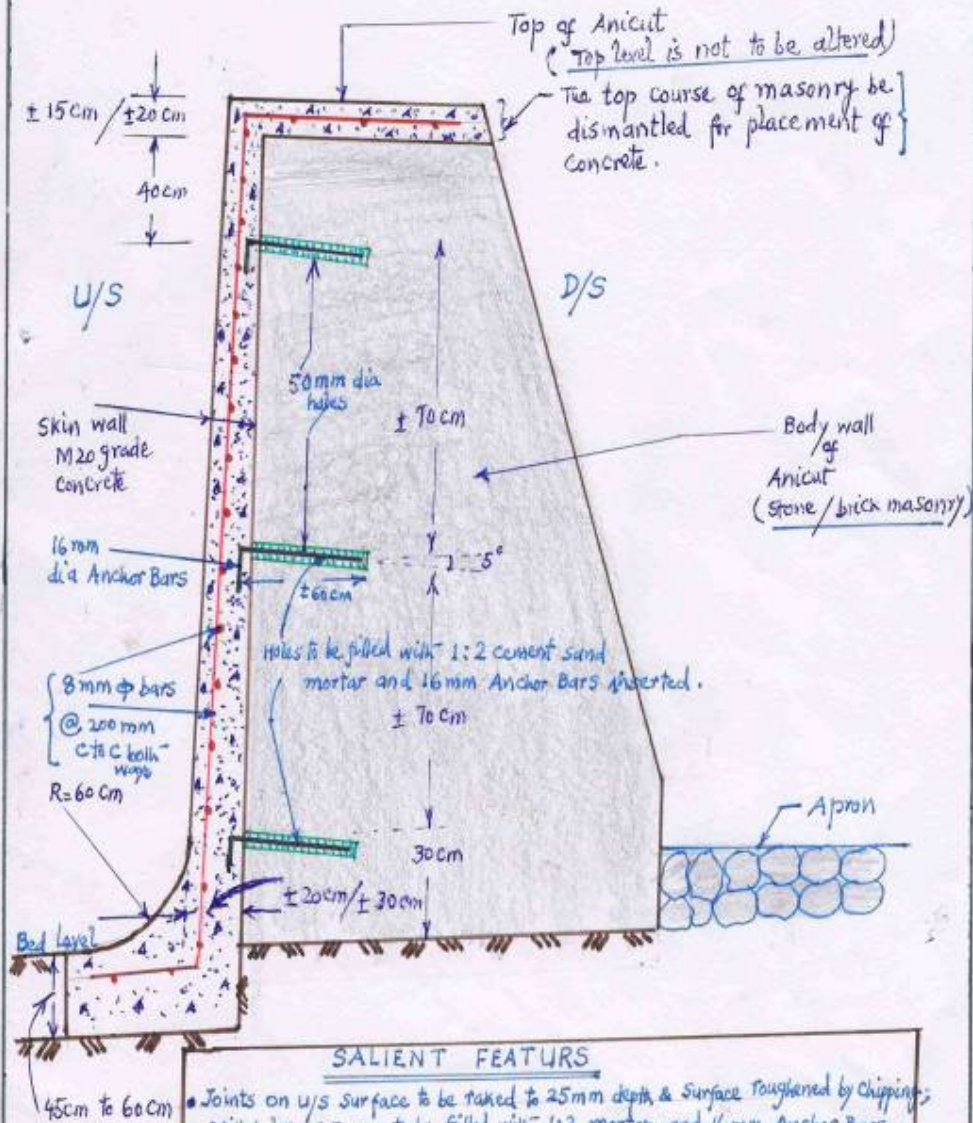 Top of Anicut
( Top level is not to be altered)
The top course of masonry be
dismantled for placement of
concrete.
± 15cm / ±20cm
40cm
U/S
D/S
50mm dia
holes
± 70cm
Skin wall
M20 grade
concrete
Body wall
of
Anicut
(stone / brick masonry)
16 mm
dia Anchor Bars
5°
±60cm
Holes to be filled with 1:2 cement sand
mortar and 16mm Anchor Bars inserted.
8mm ф bars
@ 200 mm
C to C both
ways
± 70 cm
R=60 cm
Apron
30cm
±20cm/±30cm
Bed Level
45cm to 60cm
SALIENT FEATURS
• Joints on U/S surface to be raked to 25mm depth & Surface roughened by Chipping;
to be filled with 1:2 mortar and 16mm Anchor Bars